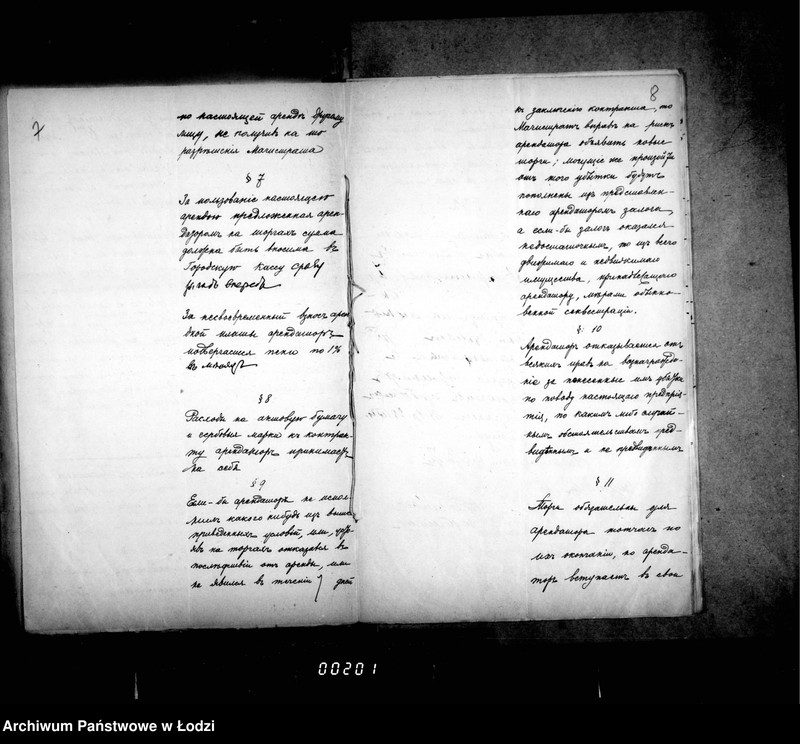 7
по настоящей арендѣ другому
лицу, не получив на то
разрѣшенія Магистрата
§ 7
За пользованіе настоящею
арендою предложенная арен-
даторомъ на торгахъ сумма
должна быть вносима въ
Городскую Кассу сразу
впередъ
За несвоевременный взносъ арен
дной платы арендаторъ
подвергается пени по 1%
въ мѣсяцъ
§ 8
Расходы на актовую бумагу
и гербовыя марки къ контрак-
ту арендаторъ принимаетъ
на себя
§ 9
Если-бы арендаторъ не испол-
нилъ какого нибудь изъ выше
приведенныхъ условій, или, удер-
жавъ на торгахъ отказался въ
послѣдствіи отъ аренды, или
не явился въ теченіи 7 дней
8
къ заключенію контракта, то
Магистратъ вправѣ на рискъ
арендатора объявить новые
торги; могущіе же произойти
отъ того убытки будутъ
пополнены изъ представлен-
наго арендаторомъ залога,
а если-бы залогъ оказался
недостаточнымъ, то изъ всего
движимаго и недвижимаго
имущества, принадлежащаго
арендатору, мѣрами обыкно-
венной секвестраціи.
§ 10
Арендаторъ отказывается отъ
всякихъ правъ на вознагражде-
ніе за понесенные имъ убытки
по поводу настоящаго предпрія-
тія, по какимъ либо случай-
нымъ обстоятельствамъ пред-
видѣннымъ и не предвидѣннымъ
§ 11
Торги обязательны для
арендатора тотчасъ по
ихъ окончаніи, но аренда-
торъ вступаетъ въ свои
00201
Archiwum Państwowe w Łodzi